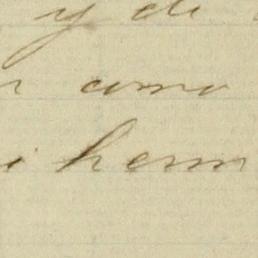 y di
como
i herm